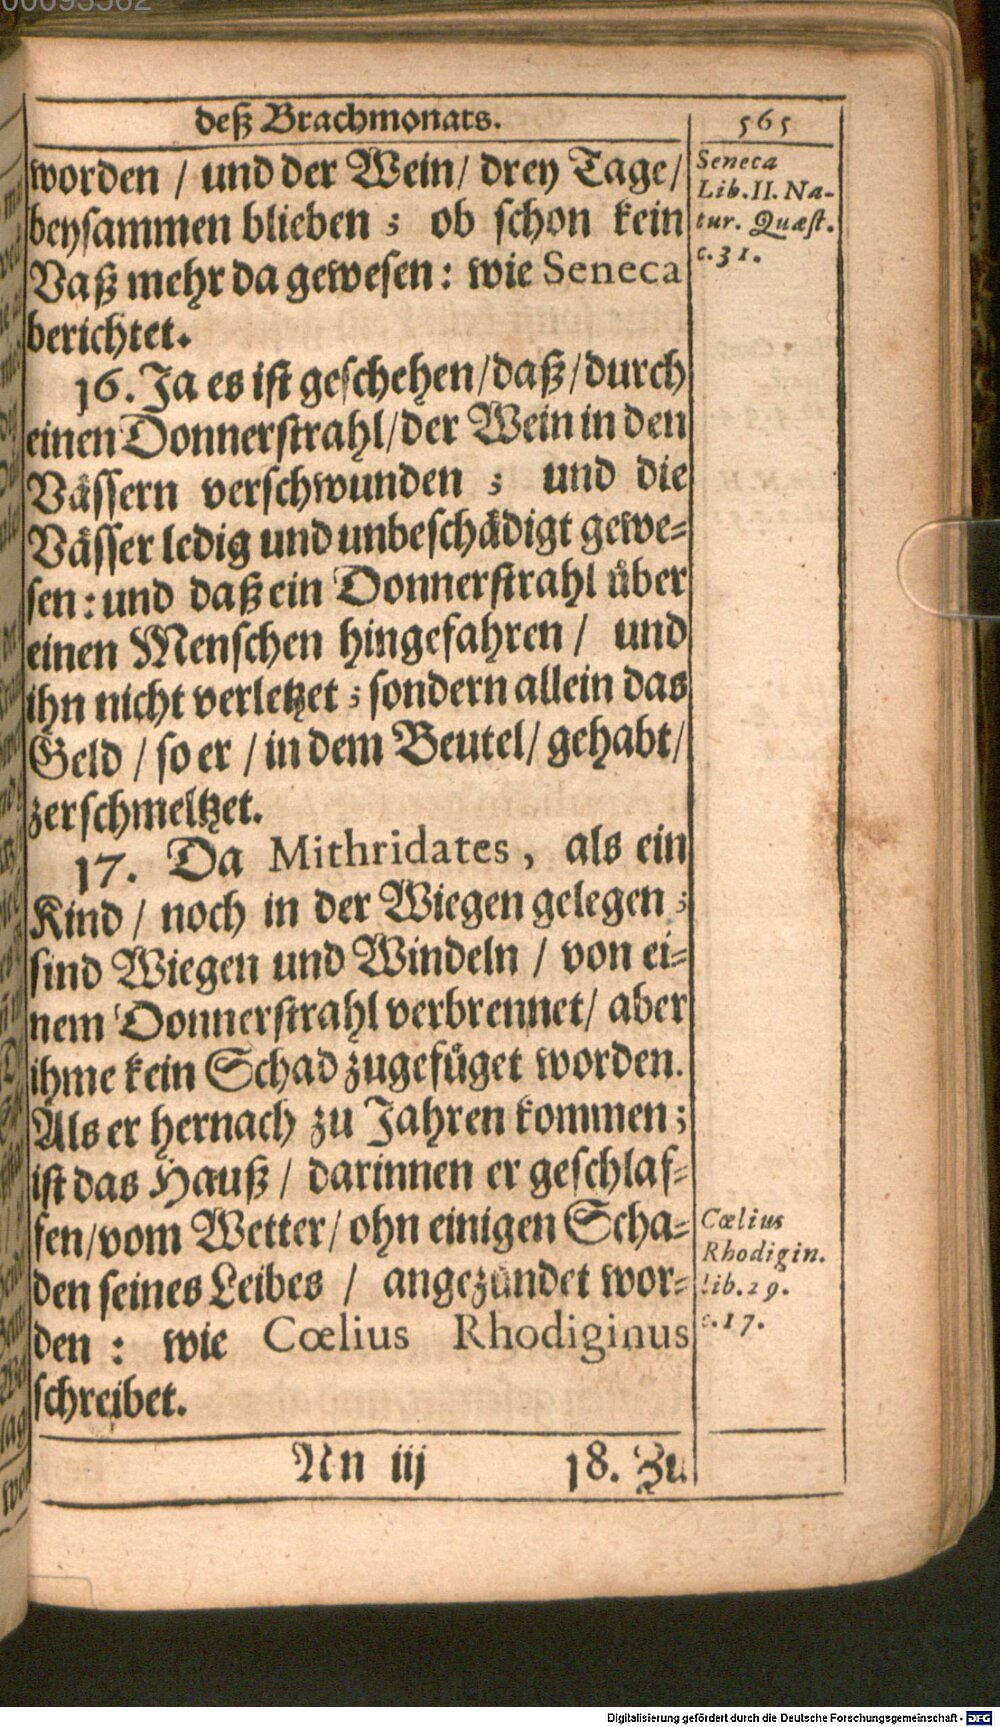 00093562
deß Brachmonats.
565
worden / und der Wein / drey Tage /
beysammen blieben ; ob schon kein
Vaß mehr da gewesen : wie Seneca
berichtet.
Seneca
Lib. II. Na-
tur. Quæst.
c. 31.
16. Ja es ist geschehen / daß / durch
einen Donnerstrahl / der Wein in den
Vässern verschwunden ; und die
Vässer ledig und unbeschädigt gewe-
sen : und daß ein Donnerstrahl über
einen Menschen hingefahren / und
ihn nicht verletzet ; sondern allein das
Geld / so er / in dem Beutel / gehabt /
zerschmeltzet.
17. Da Mithridates, als ein
Kind / noch in der Wiegen gelegen ;
sind Wiegen und Windeln / von ei-
nem Donnerstrahl verbrennet / aber
ihme kein Schad zugefüget worden.
Als er hernach zu Jahren kommen ;
ist das Hauß / darinnen er geschlaf-
fen / vom Wetter / ohn einigen Scha-
den seines Leibes / angezündet wor-
den : wie Cœlius Rhodiginus
schreibet.
Cœlius
Rhodigin.
lib. 29.
c. 17.
Nn iij
18. Zu
Digitalisierung gefördert durch die Deutsche Forschungsgemeinschaft - DFG